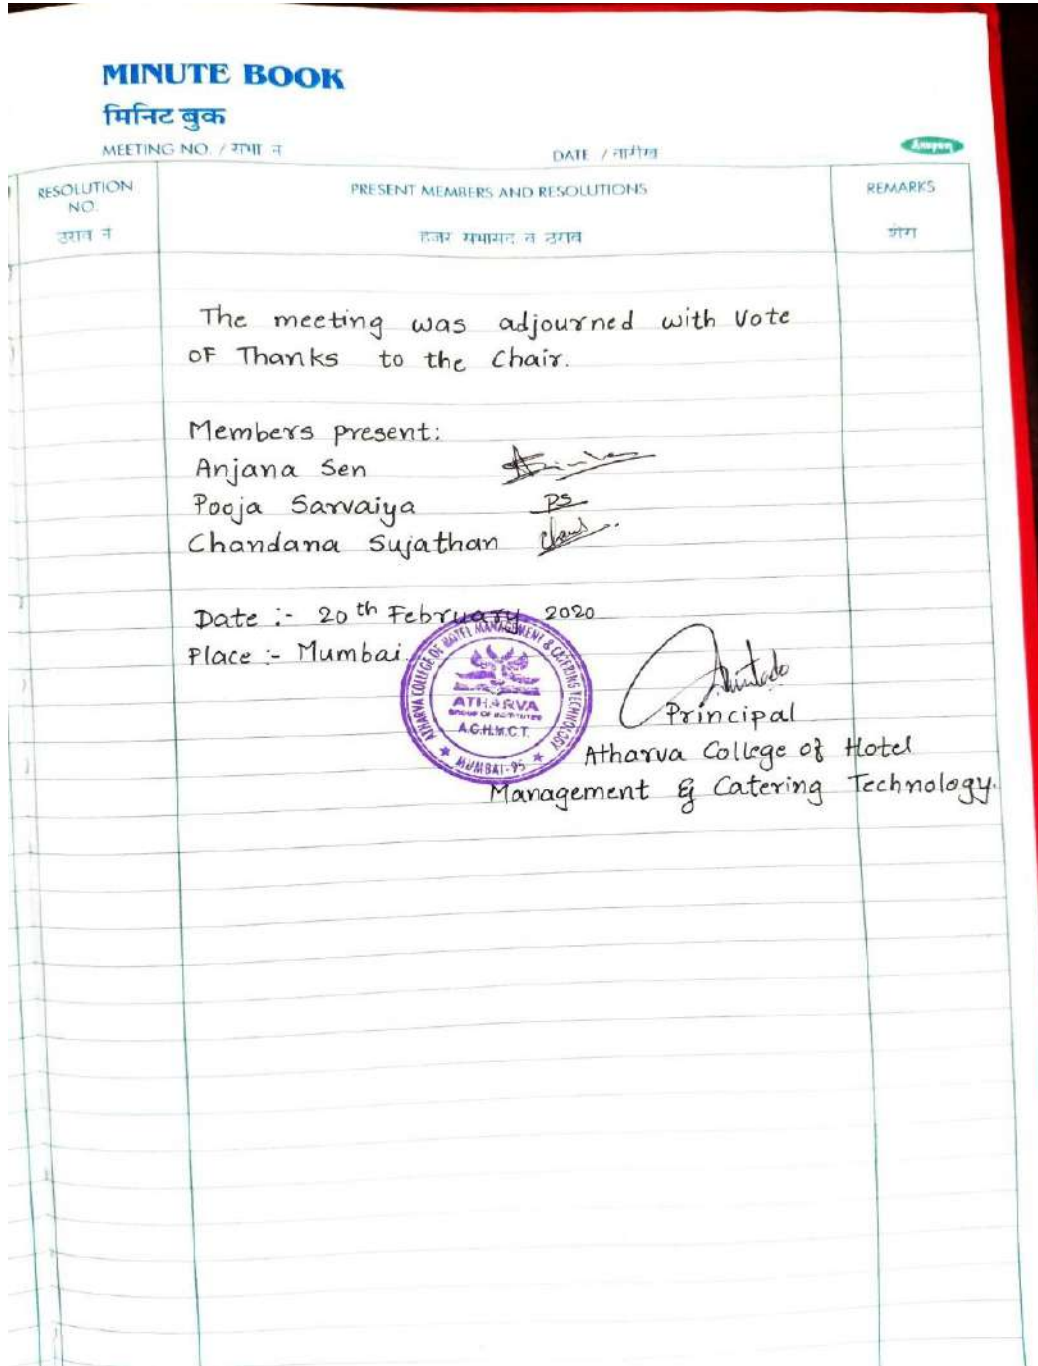 MINUTE BOOK
मिनिट बुक
MEETING NO. / सभा नं
DATE / तारीख
RESOLUTION NO.
ठराव नं
PRESENT MEMBERS AND RESOLUTIONS
हजर सभासद व ठराव
REMARKS
शेरा
The meeting was adjourned with Vote
OF Thanks to the Chair.
Members present:
Anjana Sen
Pooja Sarvaiya PS
Chandana Sujathan
Date :- 20th February 2020
Place :- Mumbai
ATHARVA COLLEGE OF HOTEL MANAGEMENT & CATERING TECHNOLOGY
ATHARVA
GROUP OF INSTITUTES
A.C.H.M.C.T.
MUMBAI-95
Principal
Atharva College of Hotel
Management & Catering Technology.